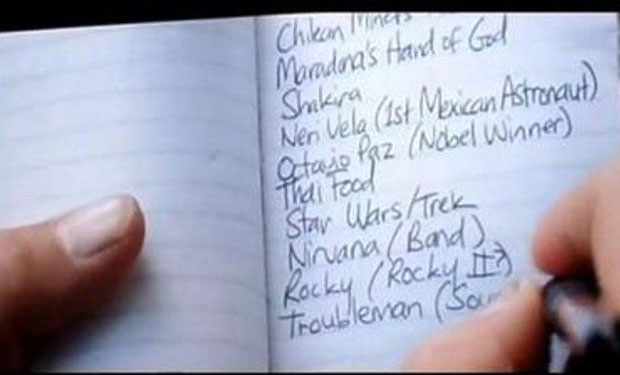 Chilean Miners
Maradona's Hand of God
Shakira
Neri Vela (1st Mexican Astronaut)
Octavio Paz (Nobel Winner)
Thai Food
Star Wars/Trek
Nirvana (Band)
Rocky (Rocky II?)
Troubleman (Sou